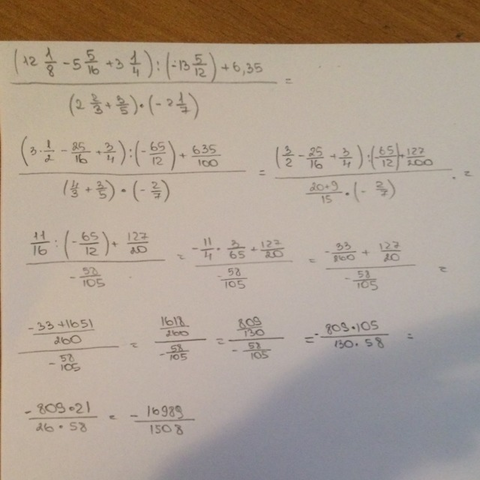 (12 1/8 - 5 5/16 + 3 1/4) : (-13 5/12) + 6,35 / (2 2/3 + 3/5) · (-2 1/7) =
(3·1/2 - 25/16 + 3/4) : (-65/12) + 635/100 / (4/3 + 3/5) · (-2/7) = (3/2 - 25/16 + 3/4) : (65/12) + 127/200 / 20+9/15 · (-2/7) =
11/16 : (-65/12) + 127/20 / -58/105 = -11/4 · 3/65 + 127/20 / -58/105 = -33/260 + 127/20 / -58/105 =
-33+1651/260 / -58/105 = 1618/260 / -58/105 = 809/130 / -58/105 = -809·105/130·58 =
-809·21/26·58 = -16989/1508